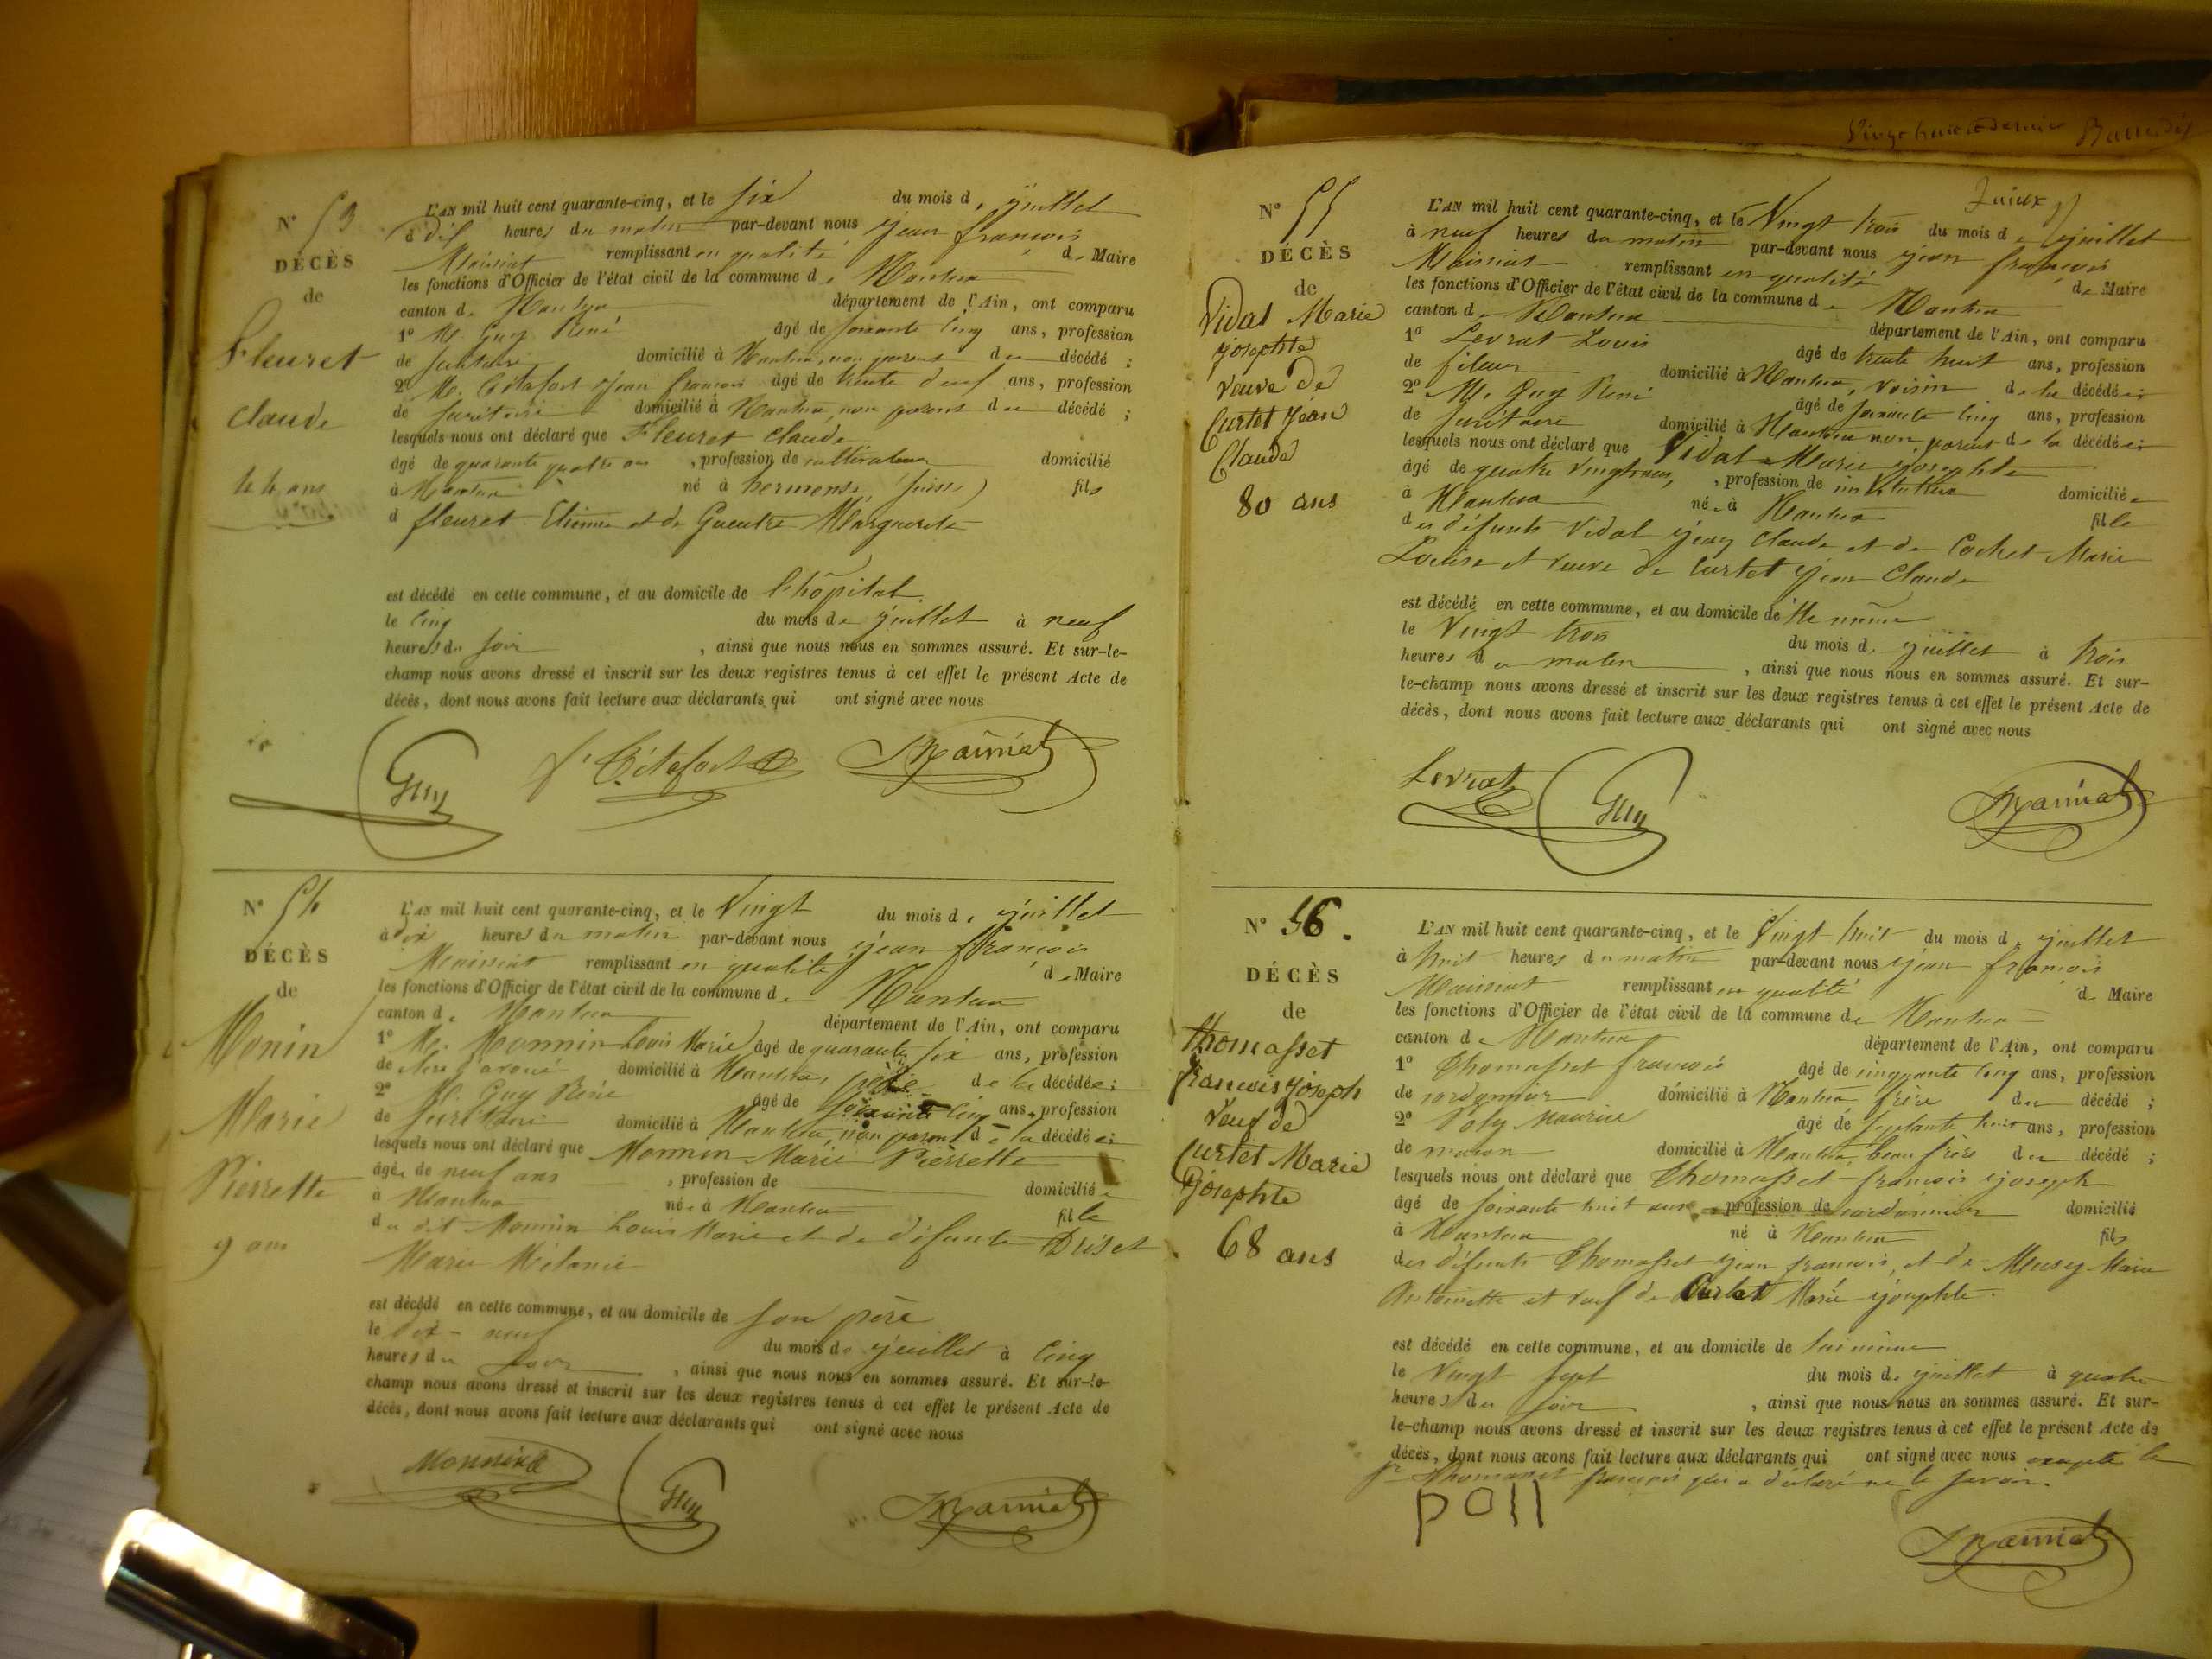 N° 53
DÉCÈS
de
Fleuret
Claude
44 ans
L'AN mil huit cent quarante-cinq, et le six du mois de juillet
à dix heures du matin par-devant nous jean françois
Maissiat remplissant en qualité de Maire
les fonctions d'Officier de l'état civil de la commune de Nantua
canton de Nantua département de l'Ain, ont comparu
1° M. Guy René âgé de soixante cinq ans, profession
de domicilié à Nantua, non parent du décédé ;
2° M. Jean françois âgé de trente neuf ans, profession
de domicilié à Nantua, non parent du décédé ;
lesquels nous ont déclaré que Fleuret Claude
âgé de quarante quatre ans, profession de cultivateur domicilié
à Nantua né à hermense, (suisse) fils
d fleuret Etienne et de Marguerite
est décédé en cette commune, et au domicile de l'hôpital
le cinq du mois de juillet à neuf
heures du soir, ainsi que nous nous en sommes assuré. Et sur-le-
champ nous avons dressé et inscrit sur les deux registres tenus à cet effet le présent Acte de
décès, dont nous avons fait lecture aux déclarants qui ont signé avec nous
Guy Maissiat
N° 54
DÉCÈS
de
Monin
Marie
Pierrette
9 ans
L'AN mil huit cent quarante-cinq, et le Vingt du mois de juillet
à dix heures du matin par-devant nous jean françois
Maissiat remplissant en qualité de Maire
les fonctions d'Officier de l'état civil de la commune de Nantua
canton de Nantua département de l'Ain, ont comparu
1° M. Monnin Louis Marie âgé de quarante six ans, profession
de domicilié à Nantua, père de la décédée ;
2° M. Guy René âgé de soixante cinq ans, profession
de domicilié à Nantua, non parent de la décédée ;
lesquels nous ont déclaré que Monnin Marie Pierrette
âgée de neuf ans, profession de domiciliée
à Nantua née à Nantua fille
du dit Monnin Louis Marie et de défunte Driset
Marie Mélanie
est décédé en cette commune, et au domicile de son père
le dix-neuf du mois de juillet à cinq
heures du soir, ainsi que nous nous en sommes assuré. Et sur-le-
champ nous avons dressé et inscrit sur les deux registres tenus à cet effet le présent Acte de
décès, dont nous avons fait lecture aux déclarants qui ont signé avec nous
Monnin Guy Maissiat
N° 55
DÉCÈS
de
Vidal Marie
josephte
veuve de
Curtet Jean
Claude
80 ans
L'AN mil huit cent quarante-cinq, et le Vingt trois du mois de juillet
à neuf heures du matin par-devant nous jean françois
Maissiat remplissant en qualité de Maire
les fonctions d'Officier de l'état civil de la commune de Nantua
canton de Nantua département de l'Ain, ont comparu
1° Levrat Louis âgé de trente huit ans, profession
de fileur domicilié à Nantua, voisin de la décédée ;
2° M. Guy René âgé de soixante cinq ans, profession
de domicilié à Nantua non parent de la décédée ;
lesquels nous ont déclaré que Vidal Marie josephte
âgé de quatre vingt ans, profession de domiciliée
à Nantua née à Nantua fille
des défunts Vidal jean Claude et de Cochet Marie
Louise et veuve de Curtet jean Claude
est décédé en cette commune, et au domicile de
le Vingt trois du mois de juillet à trois
heures du matin, ainsi que nous nous en sommes assuré. Et sur-
le-champ nous avons dressé et inscrit sur les deux registres tenus à cet effet le présent Acte de
décès, dont nous avons fait lecture aux déclarants qui ont signé avec nous
Levrat Guy Maissiat
N° 56.
DÉCÈS
de
Thomasset
françois joseph
veuf de
Curtet Marie
josephte
68 ans
L'AN mil huit cent quarante-cinq, et le Vingt huit du mois de juillet
à huit heures du matin par-devant nous jean françois
Maissiat remplissant en qualité de Maire
les fonctions d'Officier de l'état civil de la commune de Nantua
canton de Nantua département de l'Ain, ont comparu
1° Thomasset françois âgé de cinquante cinq ans, profession
de cordonnier domicilié à Nantua frère du décédé ;
2° Poly Maurice âgé de septante ans, profession
de maçon domicilié à Nantua, beau frère du décédé ;
lesquels nous ont déclaré que Thomasset françois joseph
âgé de soixante huit ans profession de cordonnier domicilié
à Nantua né à Nantua fils
des défunts Thomasset jean françois, et de Musy Marie
Antoinette et veuf de Curtet Marie josephte.
est décédé en cette commune, et au domicile de lui même
le Vingt sept du mois de juillet à quatre
heures du soir, ainsi que nous nous en sommes assuré. Et sur-
le-champ nous avons dressé et inscrit sur les deux registres tenus à cet effet le présent Acte de
décès, dont nous avons fait lecture aux déclarants qui ont signé avec nous excepté le
sr Thomasset françois qui a déclaré ne le savoir.
poll Maissiat